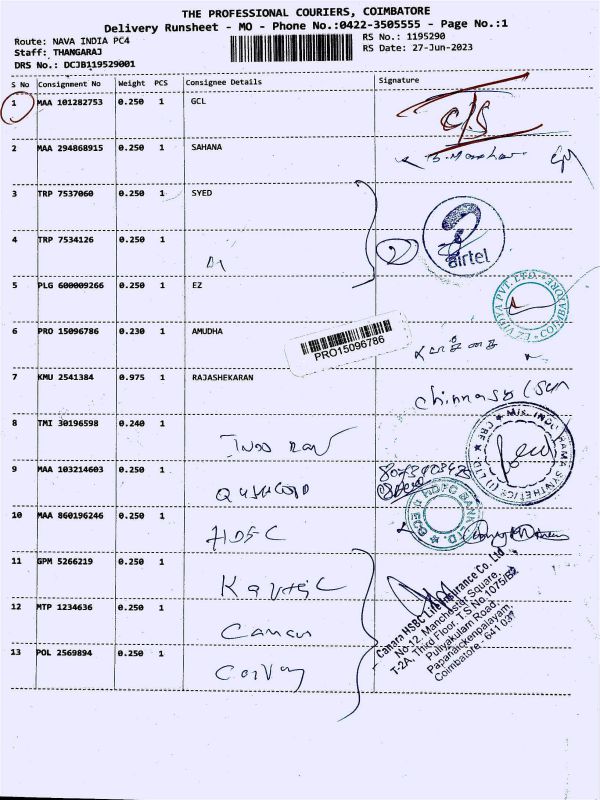 THE PROFESSIONAL COURIERS, COIMBATORE
Delivery Runsheet - MO - Phone No.:0422-3505555 - Page No.:1
Route: NAVA INDIA PC4
Staff: THANGARAJ
DRS No.: DCJB119529001
RS No.: 1195290
RS Date: 27-Jun-2023
S No Consignment No Weight PCS Consignee Details Signature
1 MAA 101282753 0.250 1 GCL
2 MAA 294868915 0.250 1 SAHANA
3 TRP 7537060 0.250 1 SYED
4 TRP 7534126 0.250 1
2
airtel
5 PLG 600009266 0.250 1 EZ
EZ VIDYA PVT. LTD. COIMBATORE
6 PRO 15096786 0.230 1 AMUDHA
PRO15096786
7 KMU 2541384 0.975 1 RAJASHEKARAN
8 TMI 30196598 0.240 1
M/s. INDO RAMA SYNTHETICS (I) LTD. CBE
9 MAA 103214603 0.250 1
10 MAA 860196246 0.250 1 HDFC
HDFC BANK LTD.
11 GPM 5266219 0.250 1
12 MTP 1234636 0.250 1
13 POL 2569894 0.250 1
Canara HSBC Life Insurance Co. Ltd
No-12, Manchester Square,
T-2A, Third Floor, T.S No.1075/B2
Puliyakulam Road,
Papanaickenpalayam,
Coimbatore - 641 037